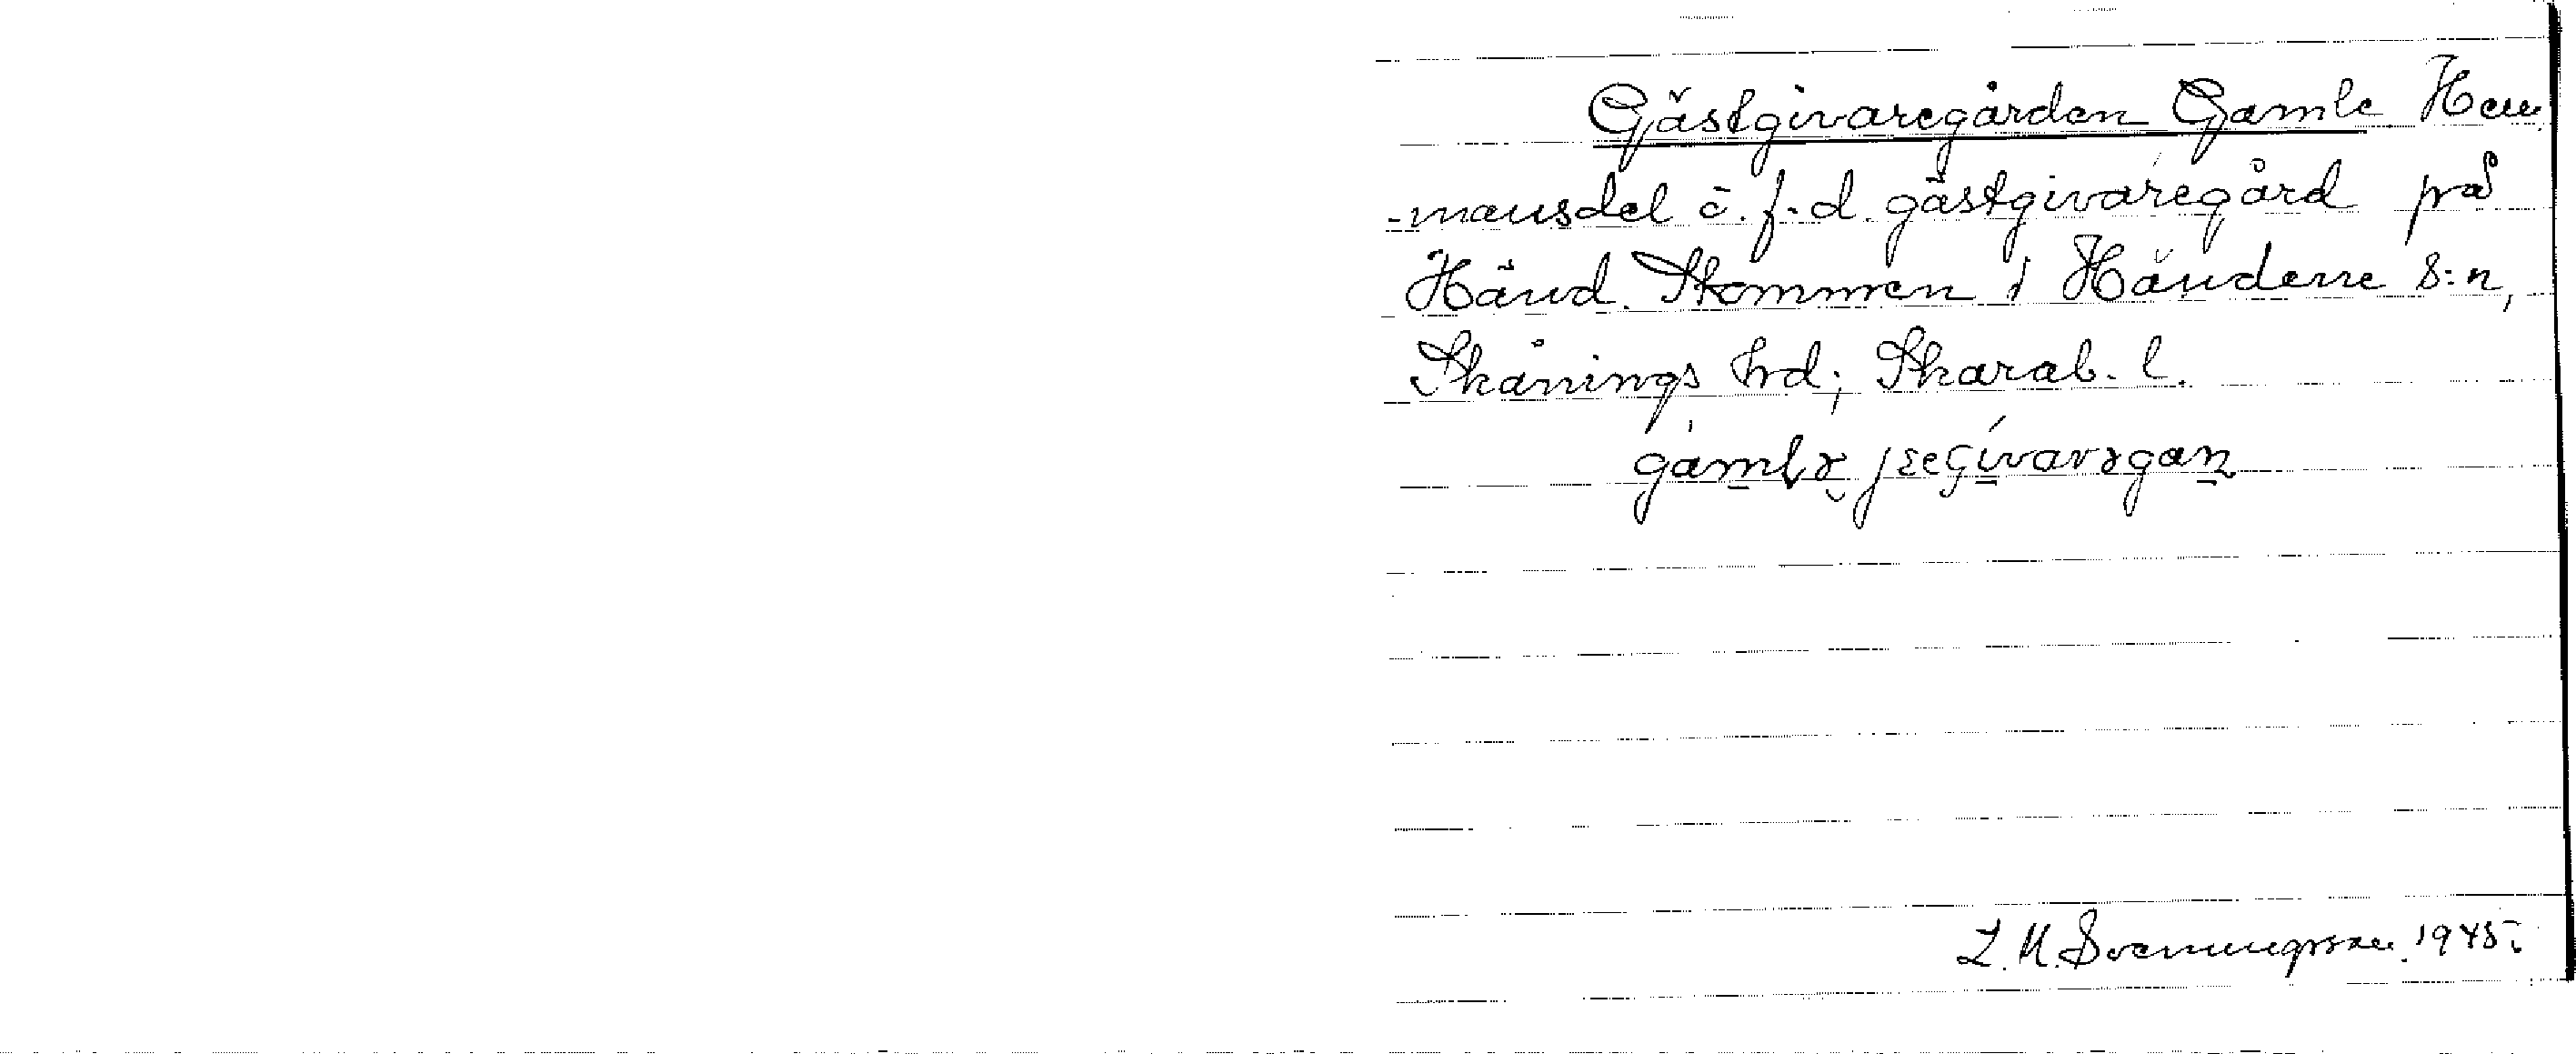 Gästgivaregården Gamle Hem
-mansdel ō. f.d. gästgivaregård på
Händ. Stommen i Händene s:n,
Skånings hrd; Skarab. l.
L. M. Svenungsson. 1945.